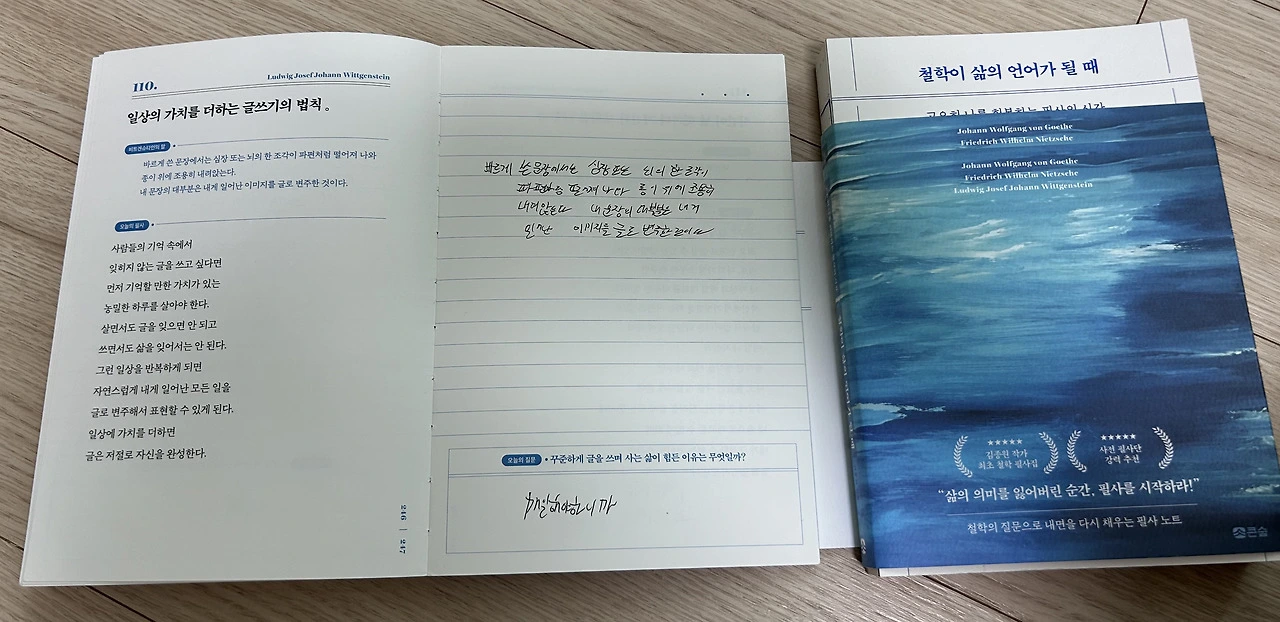 110.
Ludwig Josef Johann Wittgenstein
일상의 가치를 더하는 글쓰기의 법칙。
비트겐슈타인의 말
바르게 쓴 문장에서는 심장 또는 뇌의 한 조각이 파편처럼 떨어져 나와
종이 위에 조용히 내려앉는다.
내 문장의 대부분은 내게 일어난 이미지를 글로 변주한 것이다.
오늘의 필사
사람들의 기억 속에서
잊히지 않는 글을 쓰고 싶다면
먼저 기억할 만한 가치가 있는
농밀한 하루를 살아야 한다.
살면서도 글을 잊으면 안 되고
쓰면서도 삶을 잊어서는 안 된다.
그런 일상을 반복하게 되면
자연스럽게 내게 일어난 모든 일을
글로 변주해서 표현할 수 있게 된다.
일상에 가치를 더하면
글은 저절로 자신을 완성한다.
246 | 247
바르게 쓴 문장에서는 심장 또는 뇌의 한 조각이
파편처럼 떨어져 나와 종이 위에 조용히
내려앉는다 내 문장의 대부분은 내게
일어난 이미지를 글로 변주한 것이다
오늘의 질문 • 꾸준하게 글을 쓰며 사는 삶이 힘든 이유는 무엇일까?
매일해야하니까
철학이 삶의 언어가 될 때
Johann Wolfgang von Goethe
Friedrich Wilhelm Nietzsche
Johann Wolfgang von Goethe
Friedrich Wilhelm Nietzsche
Ludwig Josef Johann Wittgenstein
★★★★★
김종원 작가
최초 철학 필사집
★★★★★
사전 필사단
강력 추천
“삶의 의미를 잃어버린 순간, 필사를 시작하라!”
철학의 질문으로 내면을 다시 채우는 필사 노트
큰숲